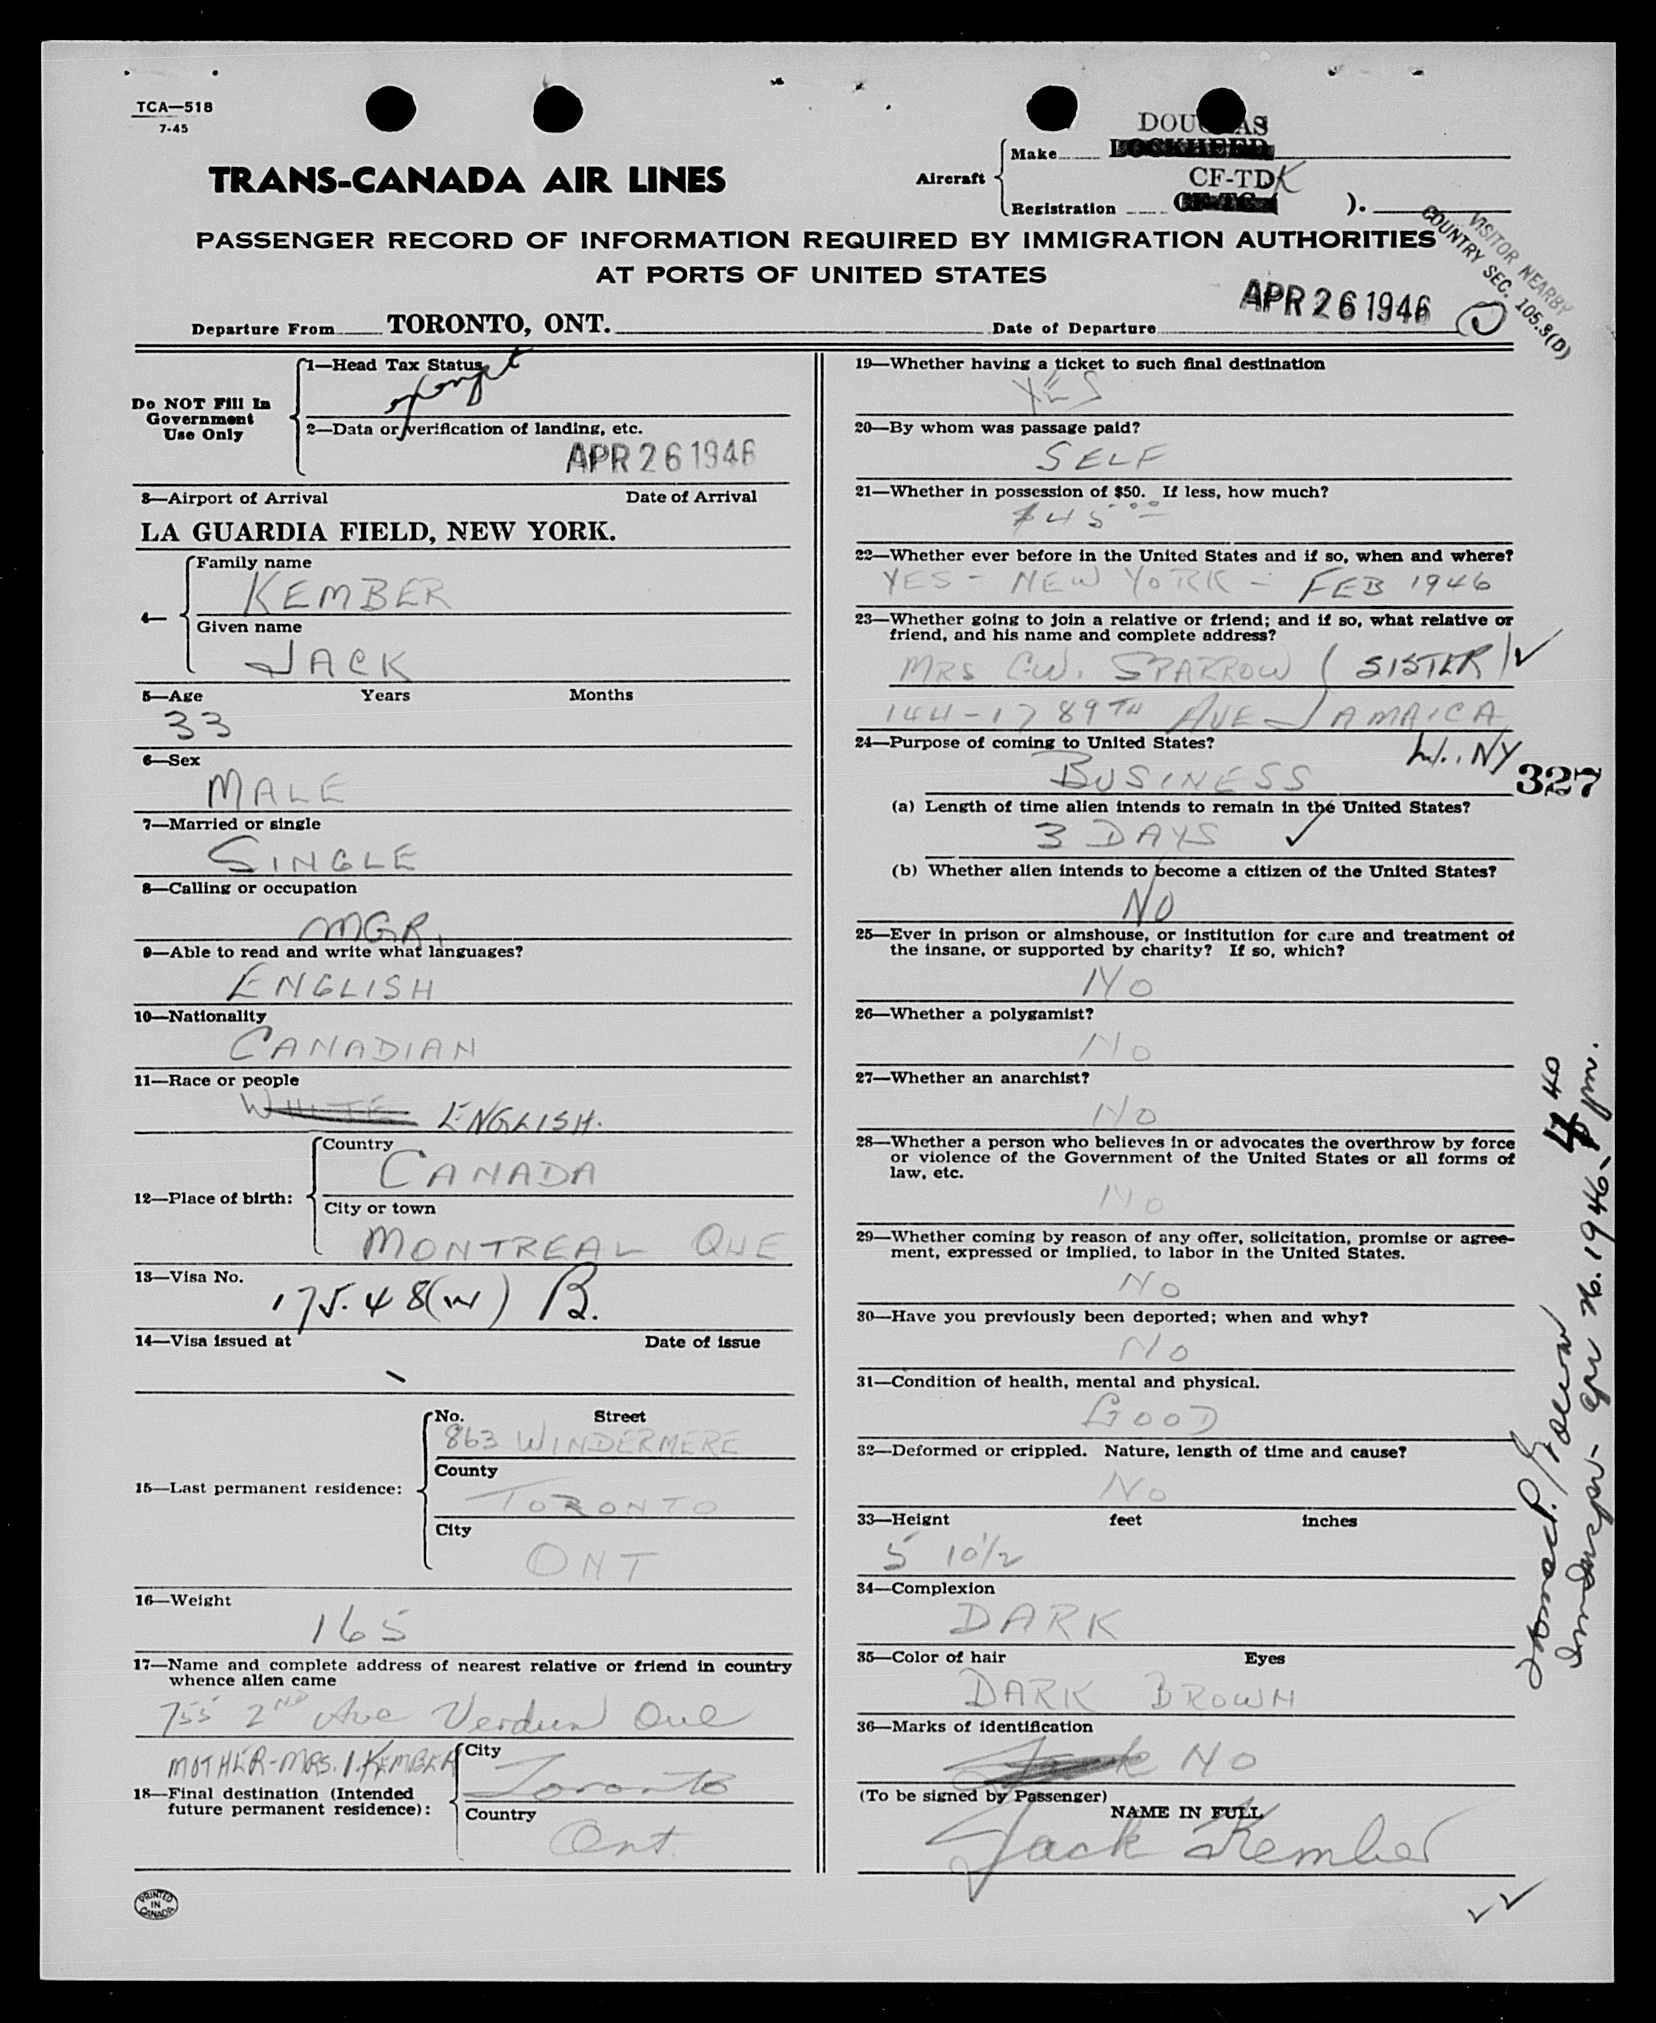 TCA—518
7-45
TRANS-CANADA AIR LINES
Aircraft
Make
DOUGLAS
LOCKHEED
Registration
CF-TDK
CF-TC
).
PASSENGER RECORD OF INFORMATION REQUIRED BY IMMIGRATION AUTHORITIES
AT PORTS OF UNITED STATES
VISITOR NEARBY
COUNTRY SEC. 105.3(D)
Departure From TORONTO, ONT. Date of Departure APR 26 1946
Do NOT Fill In
Government
Use Only
1—Head Tax Status
exempt
2—Data or verification of landing, etc.
APR 26 1946
3—Airport of Arrival Date of Arrival
LA GUARDIA FIELD, NEW YORK.
4—
Family name
KEMBER
Given name
JACK
5—Age Years Months
33
6—Sex
MALE
7—Married or single
SINGLE
8—Calling or occupation
MGR.
9—Able to read and write what languages?
ENGLISH
10—Nationality
CANADIAN
11—Race or people
WHITE ENGLISH.
12—Place of birth:
Country
CANADA
City or town
MONTREAL QUE
13—Visa No.
175.48(w) B.
14—Visa issued at Date of issue
15—Last permanent residence:
No. Street
863 WINDERMERE
County
TORONTO
City
ONT
16—Weight
165
17—Name and complete address of nearest relative or friend in country
whence alien came
755 2ND Ave Verdun Que
MOTHER-MRS. I. KEMBER
18—Final destination (Intended
future permanent residence):
City
Toronto
Country
Ont
PRINTED
IN
CANADA
19—Whether having a ticket to such final destination
YES
20—By whom was passage paid?
SELF
21—Whether in possession of $50. If less, how much?
$45.00
22—Whether ever before in the United States and if so, when and where?
YES - NEW YORK - FEB 1946
23—Whether going to join a relative or friend; and if so, what relative or
friend, and his name and complete address?
MRS C.W. SPARROW (SISTER)
144-17 89TH AVE JAMAICA
L.I., NY
24—Purpose of coming to United States?
BUSINESS
327
(a) Length of time alien intends to remain in the United States?
3 DAYS
(b) Whether alien intends to become a citizen of the United States?
NO
25—Ever in prison or almshouse, or institution for care and treatment of
the insane, or supported by charity? If so, which?
NO
26—Whether a polygamist?
NO
27—Whether an anarchist?
NO
28—Whether a person who believes in or advocates the overthrow by force
or violence of the Government of the United States or all forms of
law, etc.
NO
29—Whether coming by reason of any offer, solicitation, promise or agree-
ment, expressed or implied, to labor in the United States.
NO
30—Have you previously been deported; when and why?
NO
31—Condition of health, mental and physical.
GOOD
32—Deformed or crippled. Nature, length of time and cause?
NO
33—Height feet inches
5 10 1/2
34—Complexion
DARK
35—Color of hair Eyes
DARK BROWN
36—Marks of identification
Jack NO
(To be signed by Passenger)
NAME IN FULL
Jack Kember
Immu Inspr - Apr 26. 1946 - 4 40 pm.